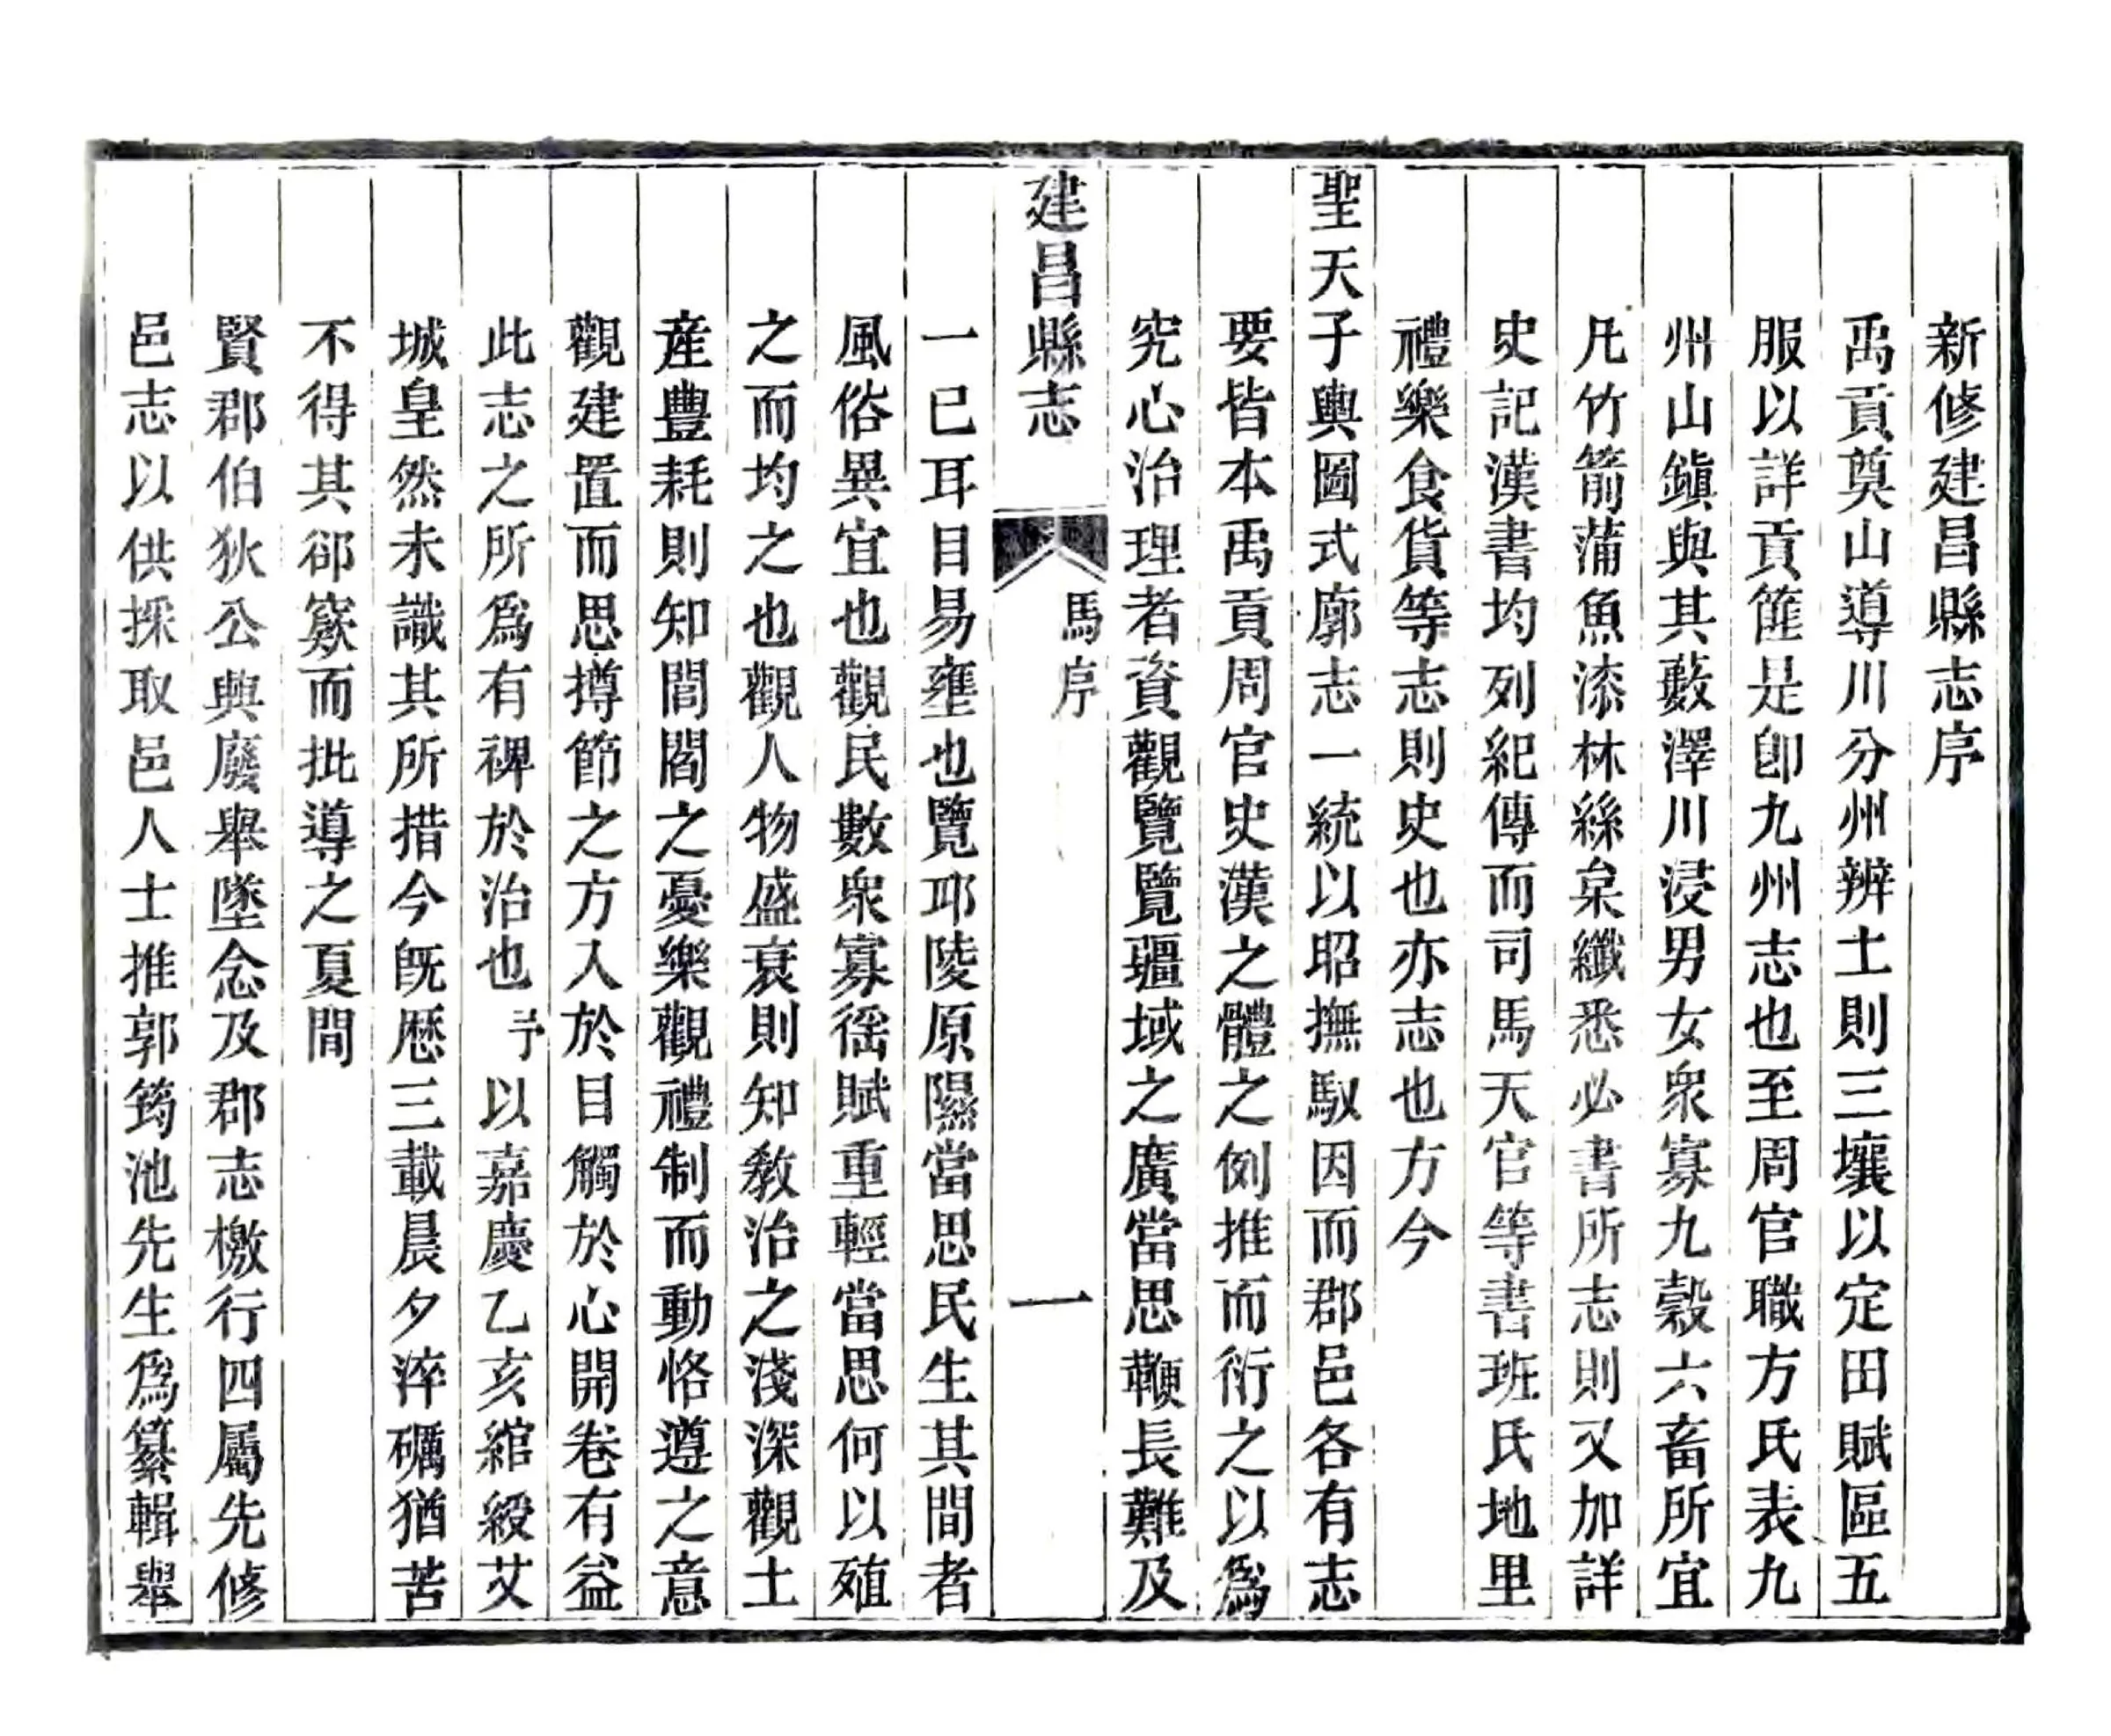 新修建昌縣志序
禹貢奠山導川分州辨土則三壤以定田賦區五
服以詳貢篚是卽九州志也至周官職方氏表九
州山鎮與其藪澤川浸男女衆寡九穀六畜所宜
凡竹箭蒲魚漆林絲枲纖悉必書所志則又加詳
史記漢書均列紀傳而司馬天官等書班氏地里
禮樂食貨等志則史也亦志也方今
聖天子輿圖式廓志一統以昭撫馭因而郡邑各有志
要皆本禹貢周官史漢之體之例推而衍之以爲
究心治理者資觀覽覽疆域之廣當思鞭長難及
建昌縣志
馬序
一
一已耳目易壅也覽邛陵原隰當思民生其間者
風俗異宜也觀民數衆寡徭賦重輕當思何以殖
之而均之也觀人物盛衰則知敎治之淺深觀土
產豐耗則知閭閻之憂樂觀禮制而動恪遵之意
觀建置而思撙節之方入於目觸於心開卷有益
此志之所爲有裨於治也予以嘉慶乙亥綰綬艾
城皇然未識其所措今旣歷三載晨夕淬礪猶苦
不得其郤窽而批導之夏間
賢郡伯狄公興廢舉墜念及郡志檄行四屬先修
邑志以供採取邑人士推郭筠池先生爲纂輯舉